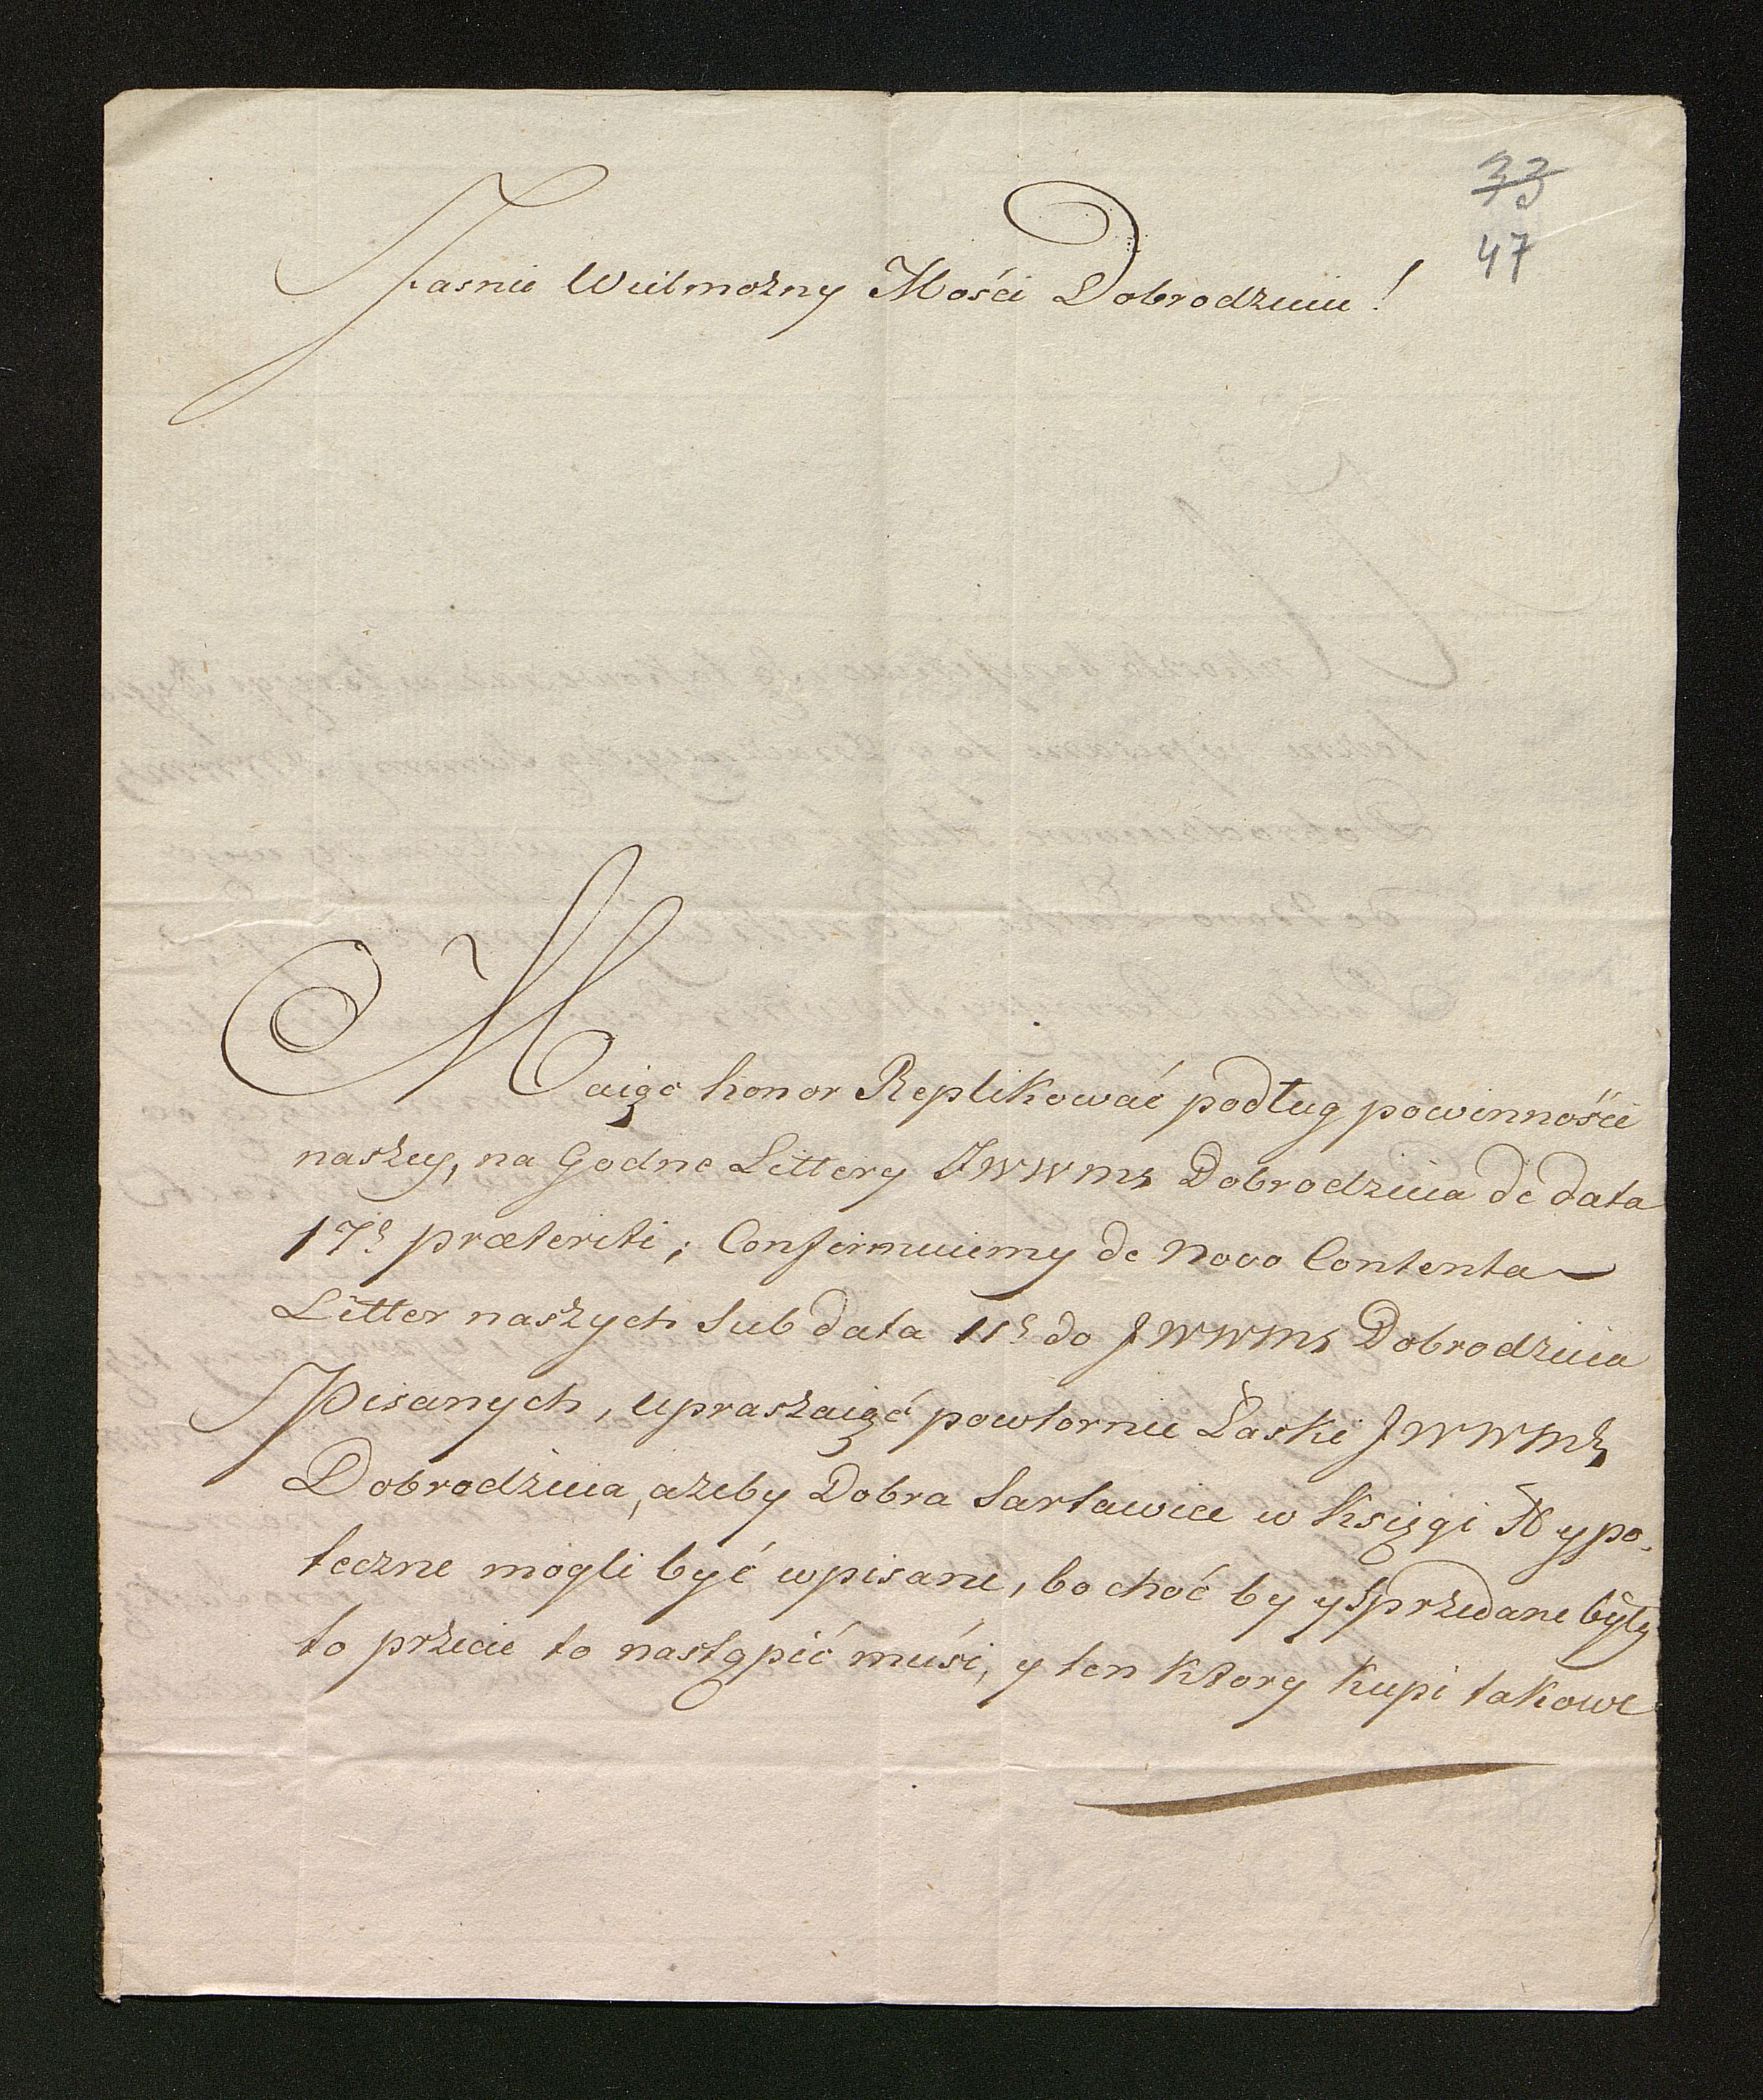 33
47
Jasnie Wielmożny Mości Dobrodzieiu!
Maiąc honor Replikować podług powinnośći
naszey, na Godne Littery JWWmś Dobrodzieia de data
17ṡ præteriti; Confirmuiemy de novo Contenta
Litter naszych sub data 11ṡ do JWWmś Dobrodzieia
Pisanych, upraszaiąć powtornie Łaski JWWmś
Dobrodzieia, ażeby Dobra Sartawice w Księgi Hypo-
teczne mogli być wpisane, bo choć by y sprzedane były
to przecie to nastąpić muśi, y ten ktory kupi takowe